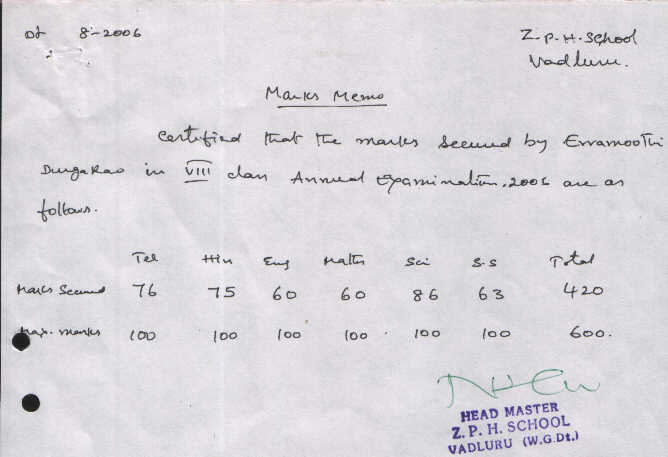 Dt 8-2006
Z.P.H.School
Vadluru.
Marks Memo
Certified that the marks secured by Erramoothi
DurgaRao in VIII class Annual Examination, 2006 are as
follows.
Tel Hin Eng Maths Sci S.S Total
Marks Secured 76 75 60 60 86 63 420
Max. marks 100 100 100 100 100 100 600.
HEAD MASTER
Z. P. H. SCHOOL
VADLURU (W.G.Dt.)